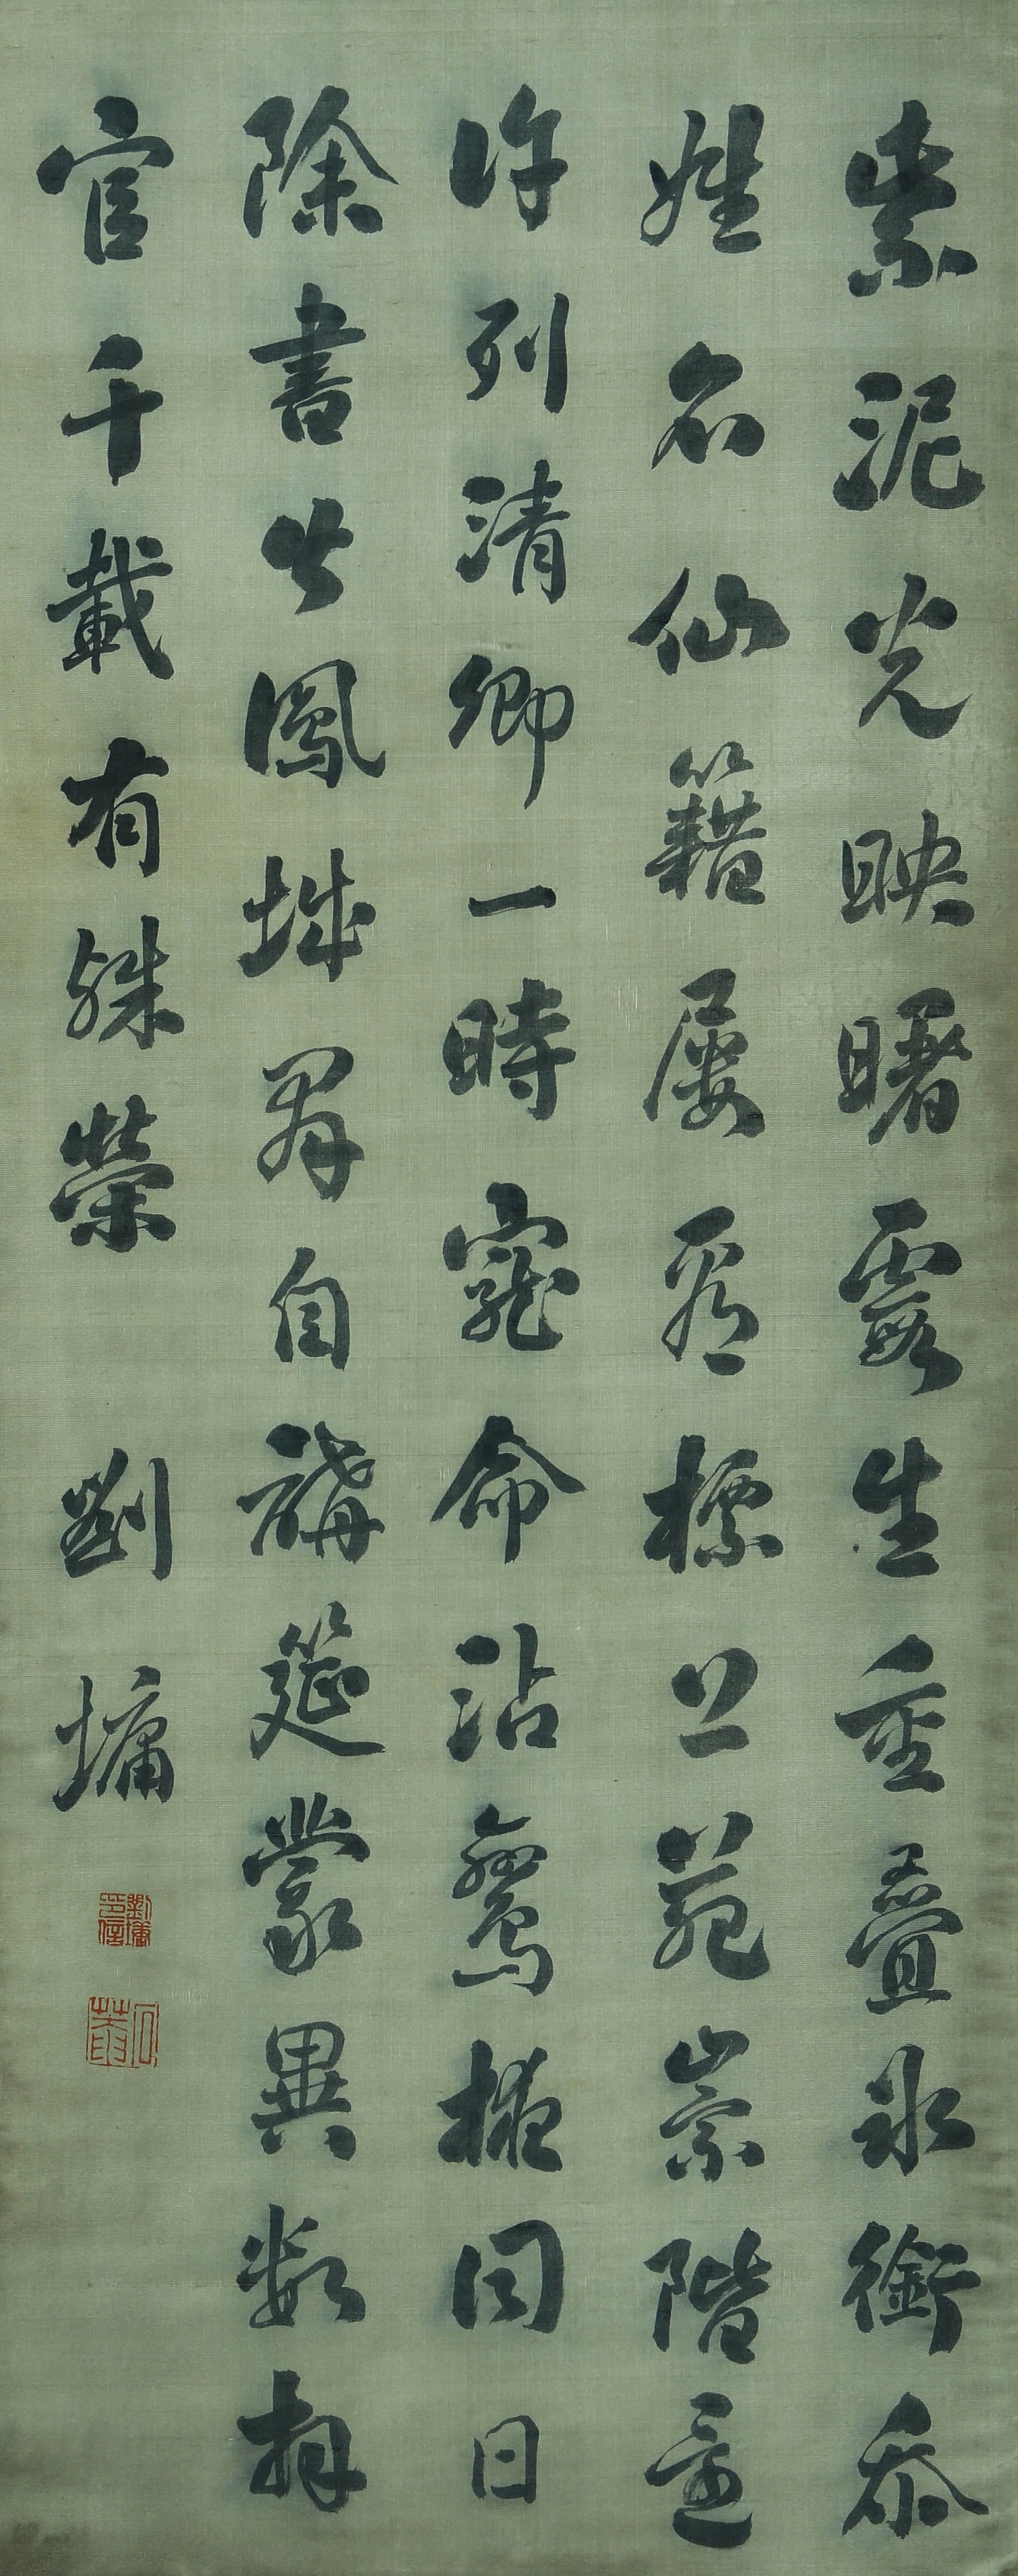 紫泥光映曙霞生重疊冰銜忝
姓名仙籍屢看標上苑崇階豈
許列清卿一時寵命沾鸞掖同日
除書出鳳城羣自講筵蒙異數拜
官千載有殊榮 劉墉
劉墉印信
石菴